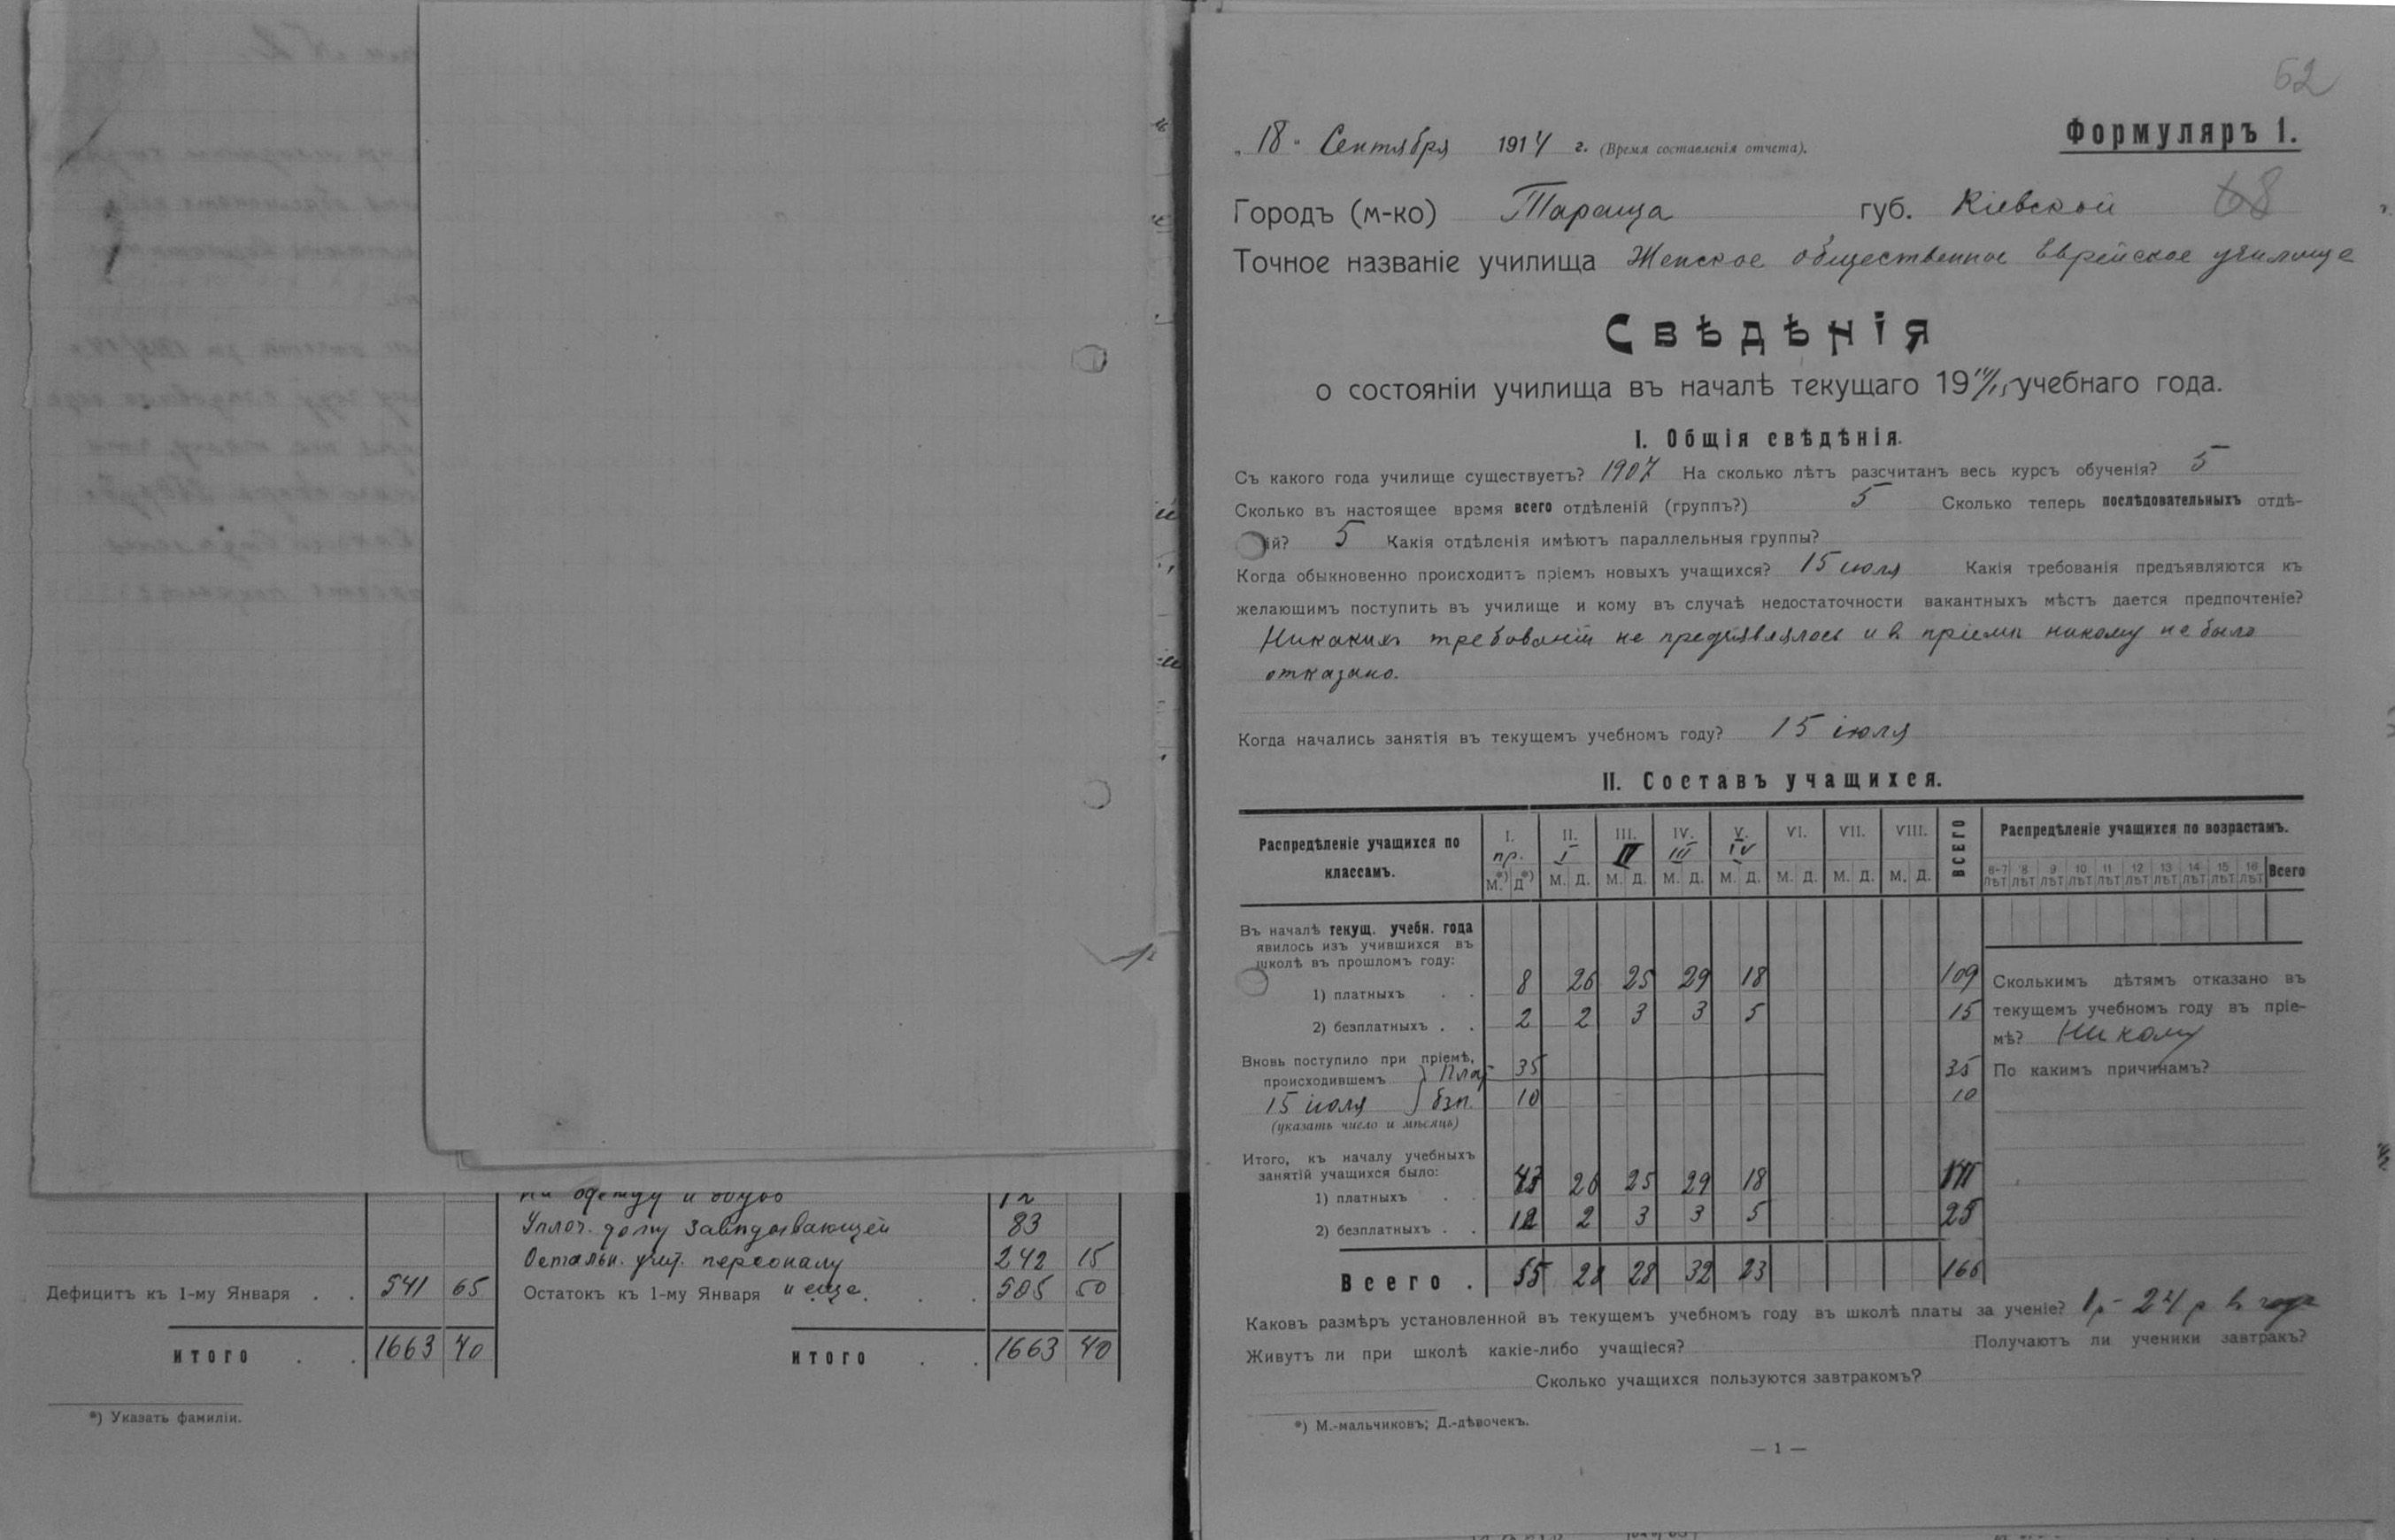 на одежду и обувь 12
Уплоч. долгу Завѣдывающей 83
Остальн. учит. персоналу 242 15
Дефицитъ къ 1-му Января . . 541 65 Остатокъ къ 1-му Января и еще . . . 505 50
ИТОГО . . 1663 40 ИТОГО . . 1663 40
*) Указать фамиліи.
62
„ 18 " Сентября 1914 г. (Время составленія отчета).
Формуляръ 1.
Городъ (м-ко) Тараща губ. Кіевской 68
Точное названіе училища Женское общественное Еврейское училище
Свѣдѣнія
о состояніи училища въ началѣ текущаго 19 14/15 учебнаго года.
I. Общія свѣдѣнія.
Съ какого года училище существуетъ? 1907 На сколько лѣтъ разсчитанъ весь курсъ обученія? 5
Сколько въ настоящее время всего отдѣленій (группъ?) 5 Сколько теперь послѣдовательныхъ отдѣ-
ій? 5 Какія отдѣленія имѣютъ параллельныя группы?
Когда обыкновенно происходитъ пріемъ новыхъ учащихся? 15 июля Какія требованія предъявляются къ
желающимъ поступить въ училище и кому въ случаѣ недостаточности вакантныхъ мѣстъ дается предпочтеніе?
Никакихъ требованій не предъявлялось и в пріемѣ никому не было
отказано.
Когда начались занятія въ текущемъ учебномъ году? 15 іюля
II. Составъ учащихся.
Распредѣленіе учащихся по классамъ. I. II. III. IV. V. VI. VII. VIII. ВСЕГО Распредѣленіе учащихся по возрастамъ.
пр. I II III IV
М.*) Д*) М. Д. М. Д. М. Д. М. Д. М. Д. М. Д. М. Д. 6-7 лѣт 8 лѣт 9 лѣт 10 лѣт 11 лѣт 12 лѣт 13 лѣт 14 лѣт 15 лѣт 16 лѣт Всего
Въ началѣ текущ. учебн. года
явилось изъ учившихся въ
школѣ въ прошломъ году:
1) платныхъ . . 8 26 25 29 18 109
2) безплатныхъ . . 2 2 3 3 5 15
Вновь поступило при пріемѣ,
происходившемъ } Плат 35 35
15 июля } бзп. 10 10
(указать число и мѣсяцъ)
Итого, къ началу учебныхъ
занятій учащихся было:
1) платныхъ . . 43 26 25 29 18 141
2) безплатныхъ . . 12 2 3 3 5 25
Всего . 55 28 28 32 23 166
Сколькимъ дѣтямъ отказано въ
текущемъ учебномъ году въ пріе-
мѣ? Никому
По какимъ причинамъ?
Каковъ размѣръ установленной въ текущемъ учебномъ году въ школѣ платы за ученіе? 1 р – 24 р в года
Живутъ ли при школѣ какіе-либо учащіеся? Получаютъ ли ученики завтракъ?
Сколько учащихся пользуются завтракомъ?
*) М.-мальчиковъ; Д.-дѣвочекъ.
— 1 —